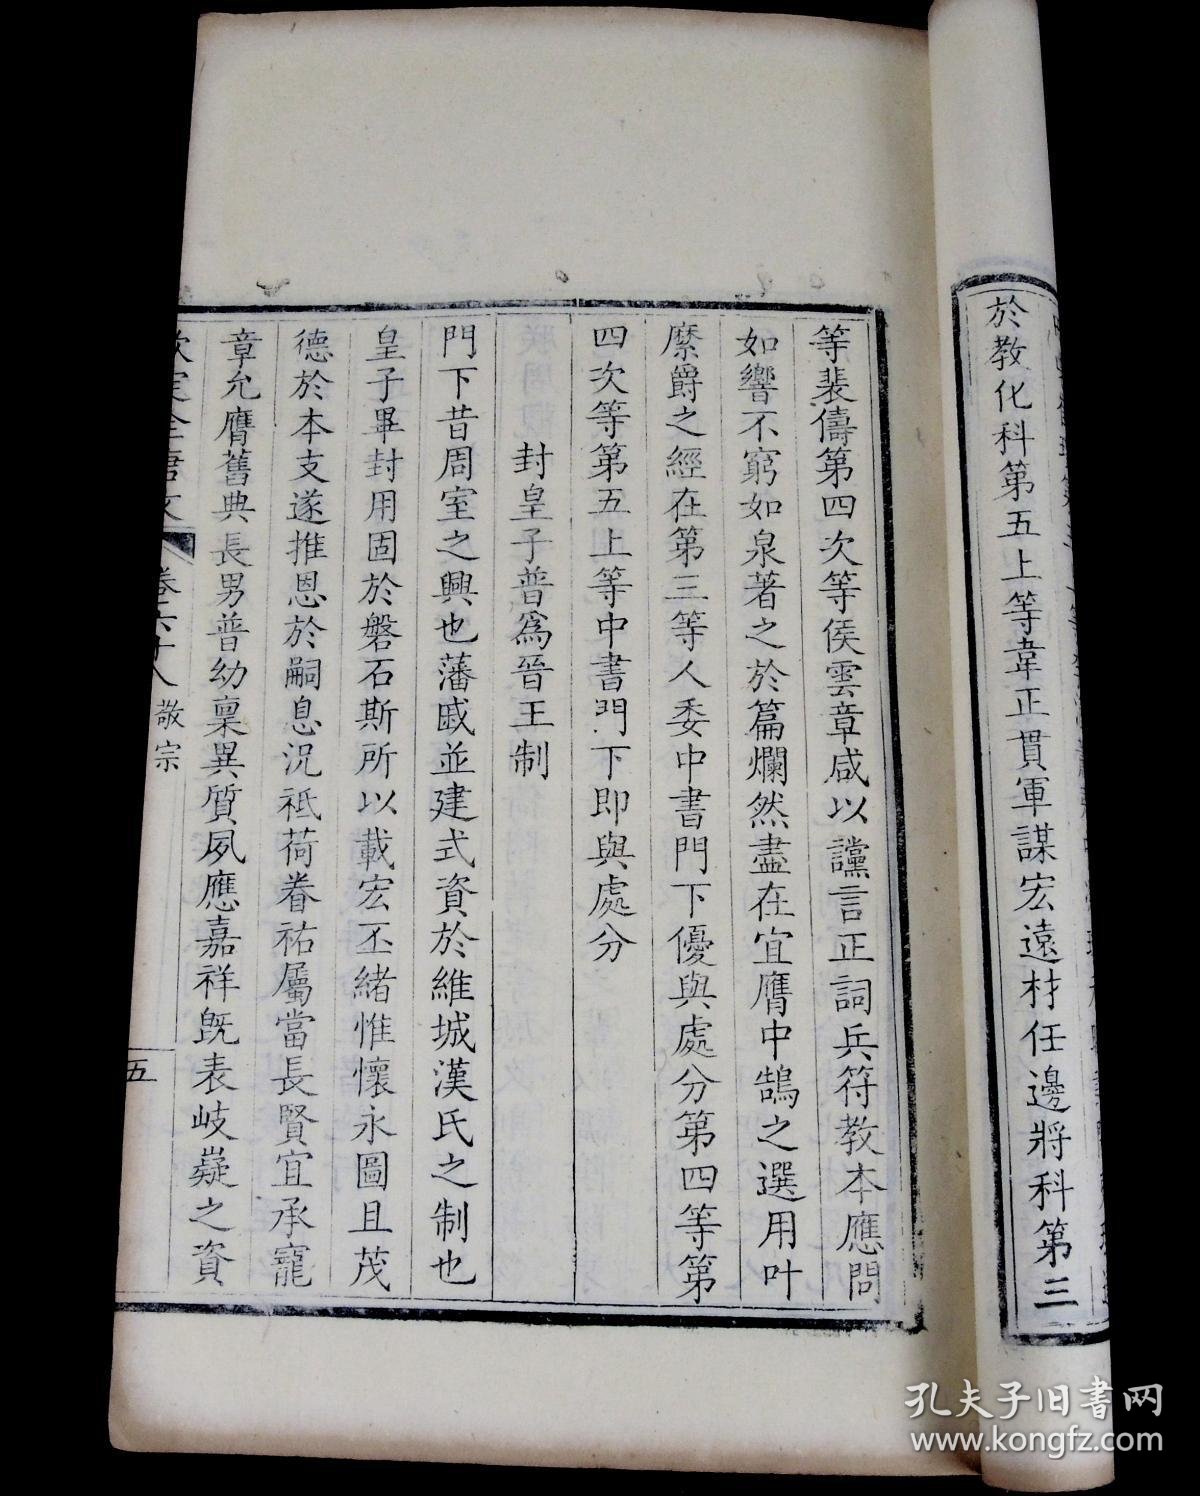 於教化科第五上等韋正貫軍謀宏遠材任邊將科第三
等裴儔第四次等侯雲章咸以讜言正詞兵符教本應問
如響不窮如泉著之於篇爛然盡在宜膺中鵠之選用叶
縻爵之經在第三等人委中書門下優與處分第四等第
四次等第五上等中書門下即與處分
封皇子普爲晉王制
門下昔周室之興也藩戚並建式資於維城漢氏之制也
皇子畢封用固於磐石斯所以載宏丕緒惟懷永圖且茂
德於本支遂推恩於嗣息況祗荷眷祐屬當長賢宜承寵
章允膺舊典長男普幼稟異質夙應嘉祥旣表岐嶷之資
欽定全唐文 卷六十八 敬宗 五
孔夫子旧书网
www.kongfz.com